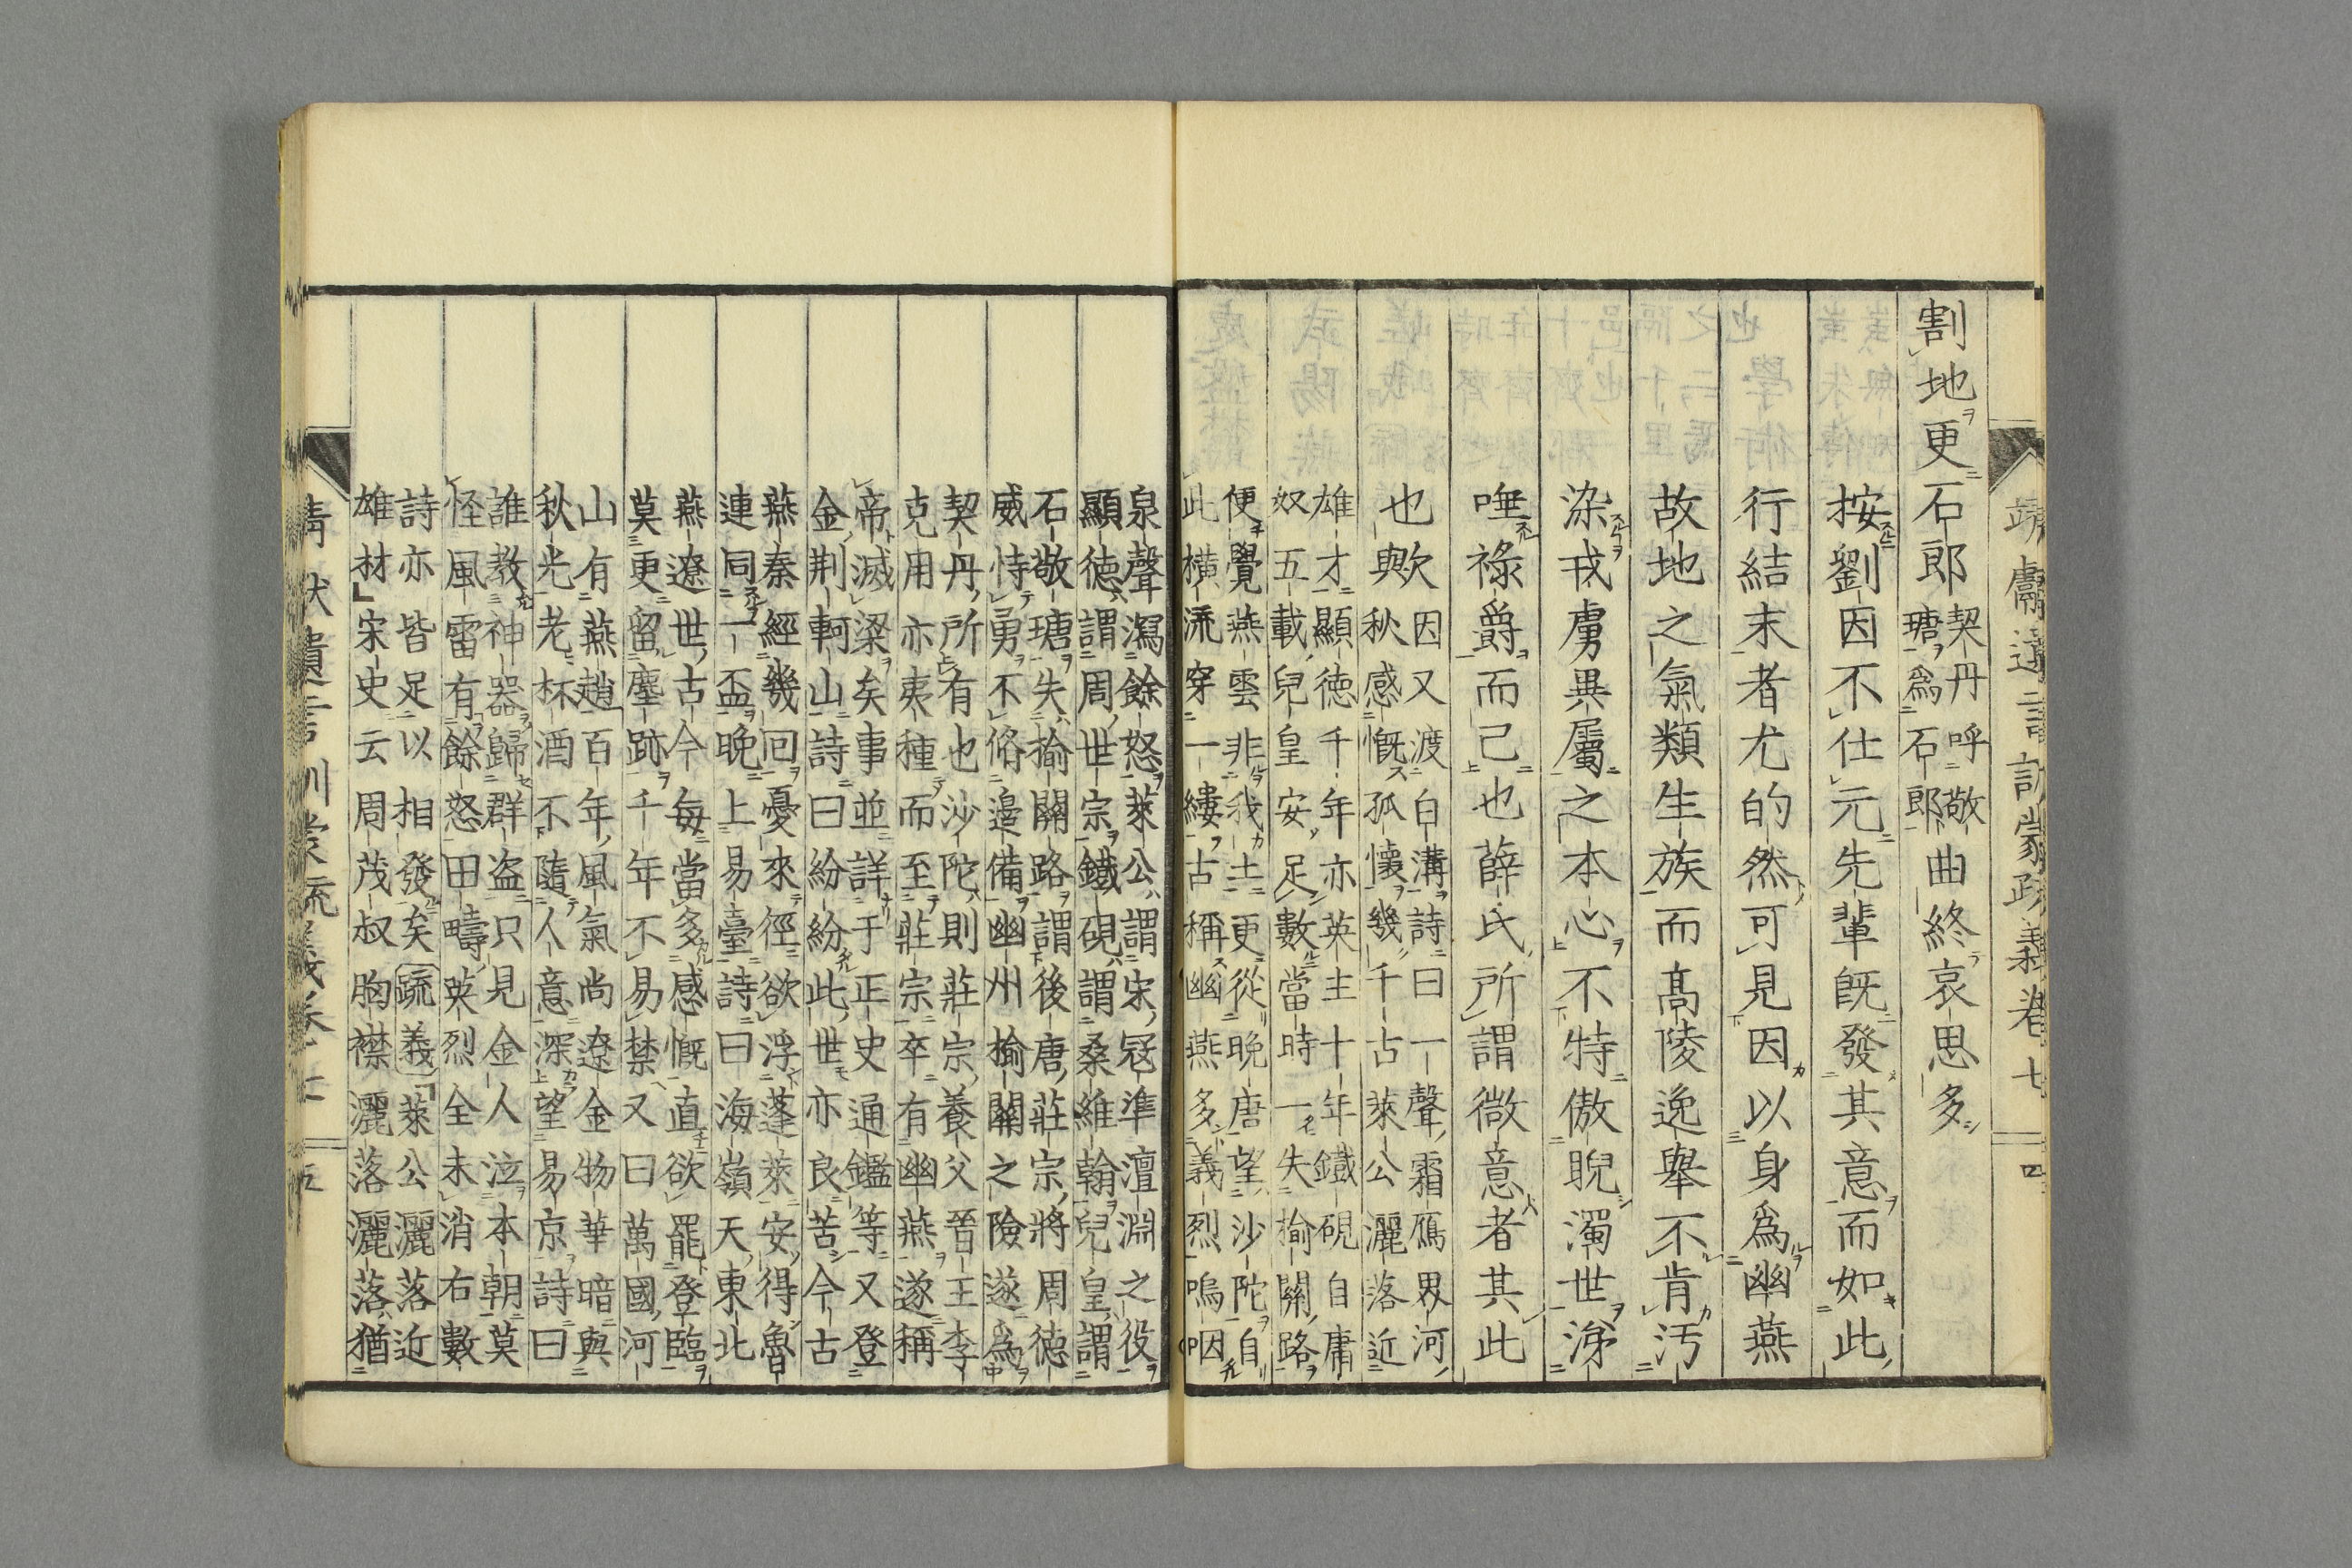 靖獻遺言訓蒙疏義卷七
四
割地更石郎契丹呼敬瑭爲石郎曲終哀思多
按劉因不仕元先輩既發其意而如此
行結末者尤的然可見因以身爲幽燕
故地之氣類生族而高陵逸舉不肯汚
染戎虜異屬之本心不特傲睨濁世涕
唾祿爵而已也薛氏所謂微意者其此
也歟因又渡白溝詩曰一聲霜雁界河
秋感慨孤懷幾千古萊公灑落近
雄才顯徳千年亦英主十年鐵硯自庸
奴五載兒皇安足數當時一失揄關路
便覺燕雲非我土更從晩唐望沙陀自
此橫流穿一縷古稱幽燕多義烈嗚咽
泉聲瀉餘怒萊公謂宋冦準澶淵之役
顯徳謂周世宗鐵硯謂桑維翰兒皇謂
石敬瑭失揄關路謂後唐莊宗將周徳
威恃勇不偹邉備幽州揄關之險遂為
契丹所有也沙陀則莊宗養父晉王李
克用亦夷種而至莊宗卒有幽燕遂稱
帝滅梁矣事並詳于正史通鑑等又登
金荆軻山詩曰紛紛此世亦良苦今古
燕秦經幾回憂來徑欲浮蓬萊安得魯
連同一盃晩上易臺詩曰海嶺天東北
燕遼世古今每當多感慨直欲罷登臨
莫更留塵跡千年不易禁又曰萬國河
山有燕趙百年風氣尚遼金物華暗與
秋光老杯酒不隨人意深望易京詩曰
誰教神器歸群盗只見金人泣本朝莫
怪風雷有餘怒田疇英烈全未消右數
詩亦皆足以相發矣疏義萊公灑落近
雄材宋史云周茂叔胸襟灑落灑落猶
五